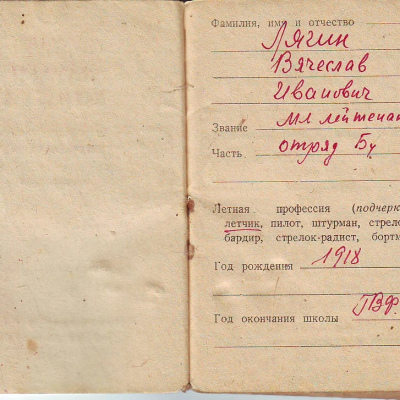 Фамилия, имя и отчество
Лягин
Вячеслав
Иванович
Звание мл лейтенан
Часть отряд Бу
Летная профессия (подчерк
летчик, пилот, штурман, стрело
бардир, стрелок-радист, бортм
Год рождения 1918
Год окончания школы ГВФ